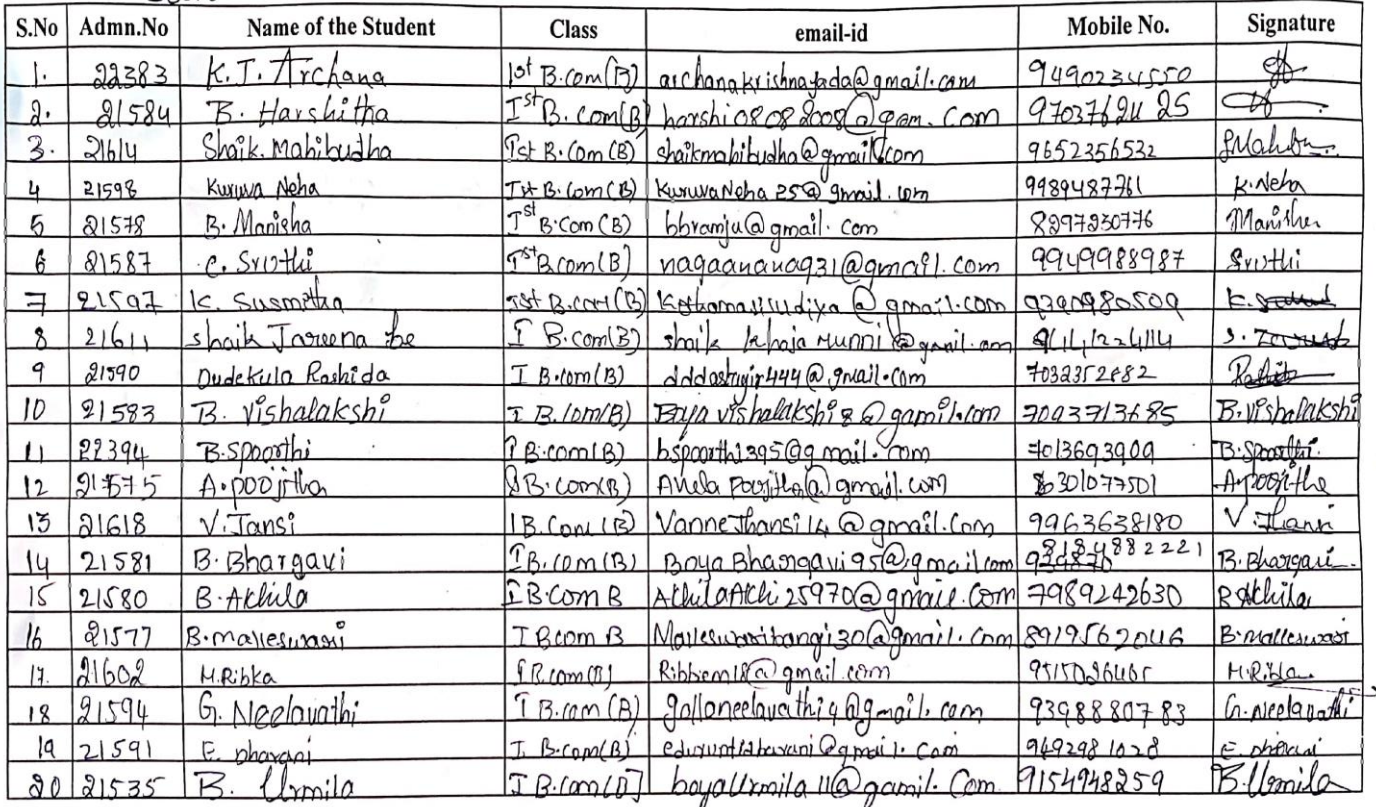 S.No Admn.No Name of the Student Class email-id Mobile No. Signature
1. 22383 K. J. Archana 1st B.com (B) archanakrishnajada@gmail.com 9490234550
2. 21584 B. Harshitha Ist B. Com(B) harshi08082008@gam. Com 9703762425
3. 21614 Shaik. Mahibudha Ist B. Com (B) shaikmahibudha@gmail.com 9652356532
4 21598 Kuruva Neha Ist B. Com (B) KuruvaNeha 25@ gmail. com 9989487761 K. Neha
5 21578 B. Manisha Ist B.Com (B) bbvamju@gmail. Com 8297230776 Manisha
6 21587 C. Sruthi Ist B.com(B) nagaananag31@gmail.com 9949988987 Sruthi
7 21597 K. Susmitha Ist B.com (B) @gmail.com 9390980509
8 21611 shaik Jareena be I B.com(B) shaik khaja munni @
9 21590 Dudekula Rashida I B.com(B) 7032352882
10 21583 B. Vishalakshi I B.com(B) Boya vishalakshi8@gamil.com 7093713685 B. Vishalakshi
11 22394 B. Spoorthi I B.com(B) bspoorthi395@gmail.com 7013693909 B. Spoorthi.
12 21575 A. poojitha I B. com(B) Avula Poojitha@gmail.com 6301077501 A poojitha
13 21618 V. Jansi I B. Com (B) VanneJhansi14@gmail.Com 9963638180 V. Jhansi
14 21581 B. Bhargavi I B. com (B) Boya Bhargavi95@gmailcom 8184882221 B. Bhargavi
15 21580 B. Akhila I B.Com B AkhilaAkhi25970@gmail.Com 7989242630 B Akhila
16 21577 B. malleswari I Bcom B Malleswaribangi30@gmail.Com 8919562046 B. malleswari
17. 21602 M. Ribka I B.com(B) @gmail.com 9515026465 M. Ribka
18 21594 G. Neelavathi I B.com (B) gollaneelavathi4@gmail.com 9398880783 G. Neelavathi
19 21591 E. Dharani I B.com(B) @gmail.Com 9492981028 E. Dharani
20 21535 B. Urmila I B.com[B] boyaUrmila11@gamil.Com 9154948259 B. Urmila